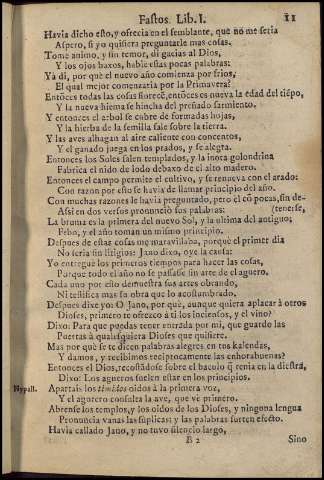 Fastos. Lib. I. 11
Havia dicho esto, y ofrecia en el semblante, que no me seria
Aspero, si yo quisiera preguntarle mas cosas.
Tomè animo, y sin temor, di gracias al Dios,
Y los ojos baxos, hable estas pocas palabras:
Yà di, por què el nuevo año comienza por frios,
El qual mejor comenzaria por la Primavera?
Entõces todas las cosas florecẽ, entõces es nueva la edad del tiẽpo,
Y la nueva hiema se hincha del preñado sarmiento.
Y entonces el arbol se cubre de formadas hojas,
Y la hierba de la semilla sale sobre la tierra.
Y las aves halagan al aire caliente con concentos,
Y el ganado juega en los prados, y se alegra.
Entonces los Soles salen templados, y la inota golondrina
Fabrica el nido de lodo debaxo de el alto madero.
Entonces el campo permite el cultivo, y se renueva con el arado:
Con razon por esto se havia de llamar principio del año.
Con muchas razones le havia preguntado, pero el cõ pocas, sin de-
Assi en dos versos pronunciò sus palabras: (tenerse,
La bruma es la primera del nuevo Sol, y la ultima del antiguo;
Febo, y el año toman un mismo principio.
Despues de estas cosas me maravillaba, porquè el primer dia
No seria sin litigios: Jano dixo, oye la causa:
Yo entreguè los primeros tiempos para hacer las cosas,
Porque todo el año no se passasse sin arte de el aguero.
Cada uno por esto demuestra sus artes obrando,
Ni testifica mas su obra que lo acostumbrado.
Despues dixe yo: O Jano, por què, aunque quiera aplacar à otros
Dioses, primero te ofrezco à ti los inciensos, y el vino?
Dixo: Para que puedas tener entrada por mi, que guardo las
Puertas à qualesquiera Dioses que quisiere.
Mas por què se te dicen palabras alegres en tus kalendas,
Y damos, y recibimos reciprocamente las enhorabuenas?
Entonces el Dios, recostãdose sobre el baculo q̃ tenia en la diestra,
Dixo: Los agueros suelen estar en los principios.
Hypall. Apartais los timidos oidos à la primera voz,
Y el agorero consulta la ave, que vè primero.
Abrense los templos, y los oidos de los Dioses, y ninguna lengua
Pronuncia vanas las suplicas; y las palabras surten efecto.
Havia callado Jano, y no tuvo silencio largo,
B 2 Sino